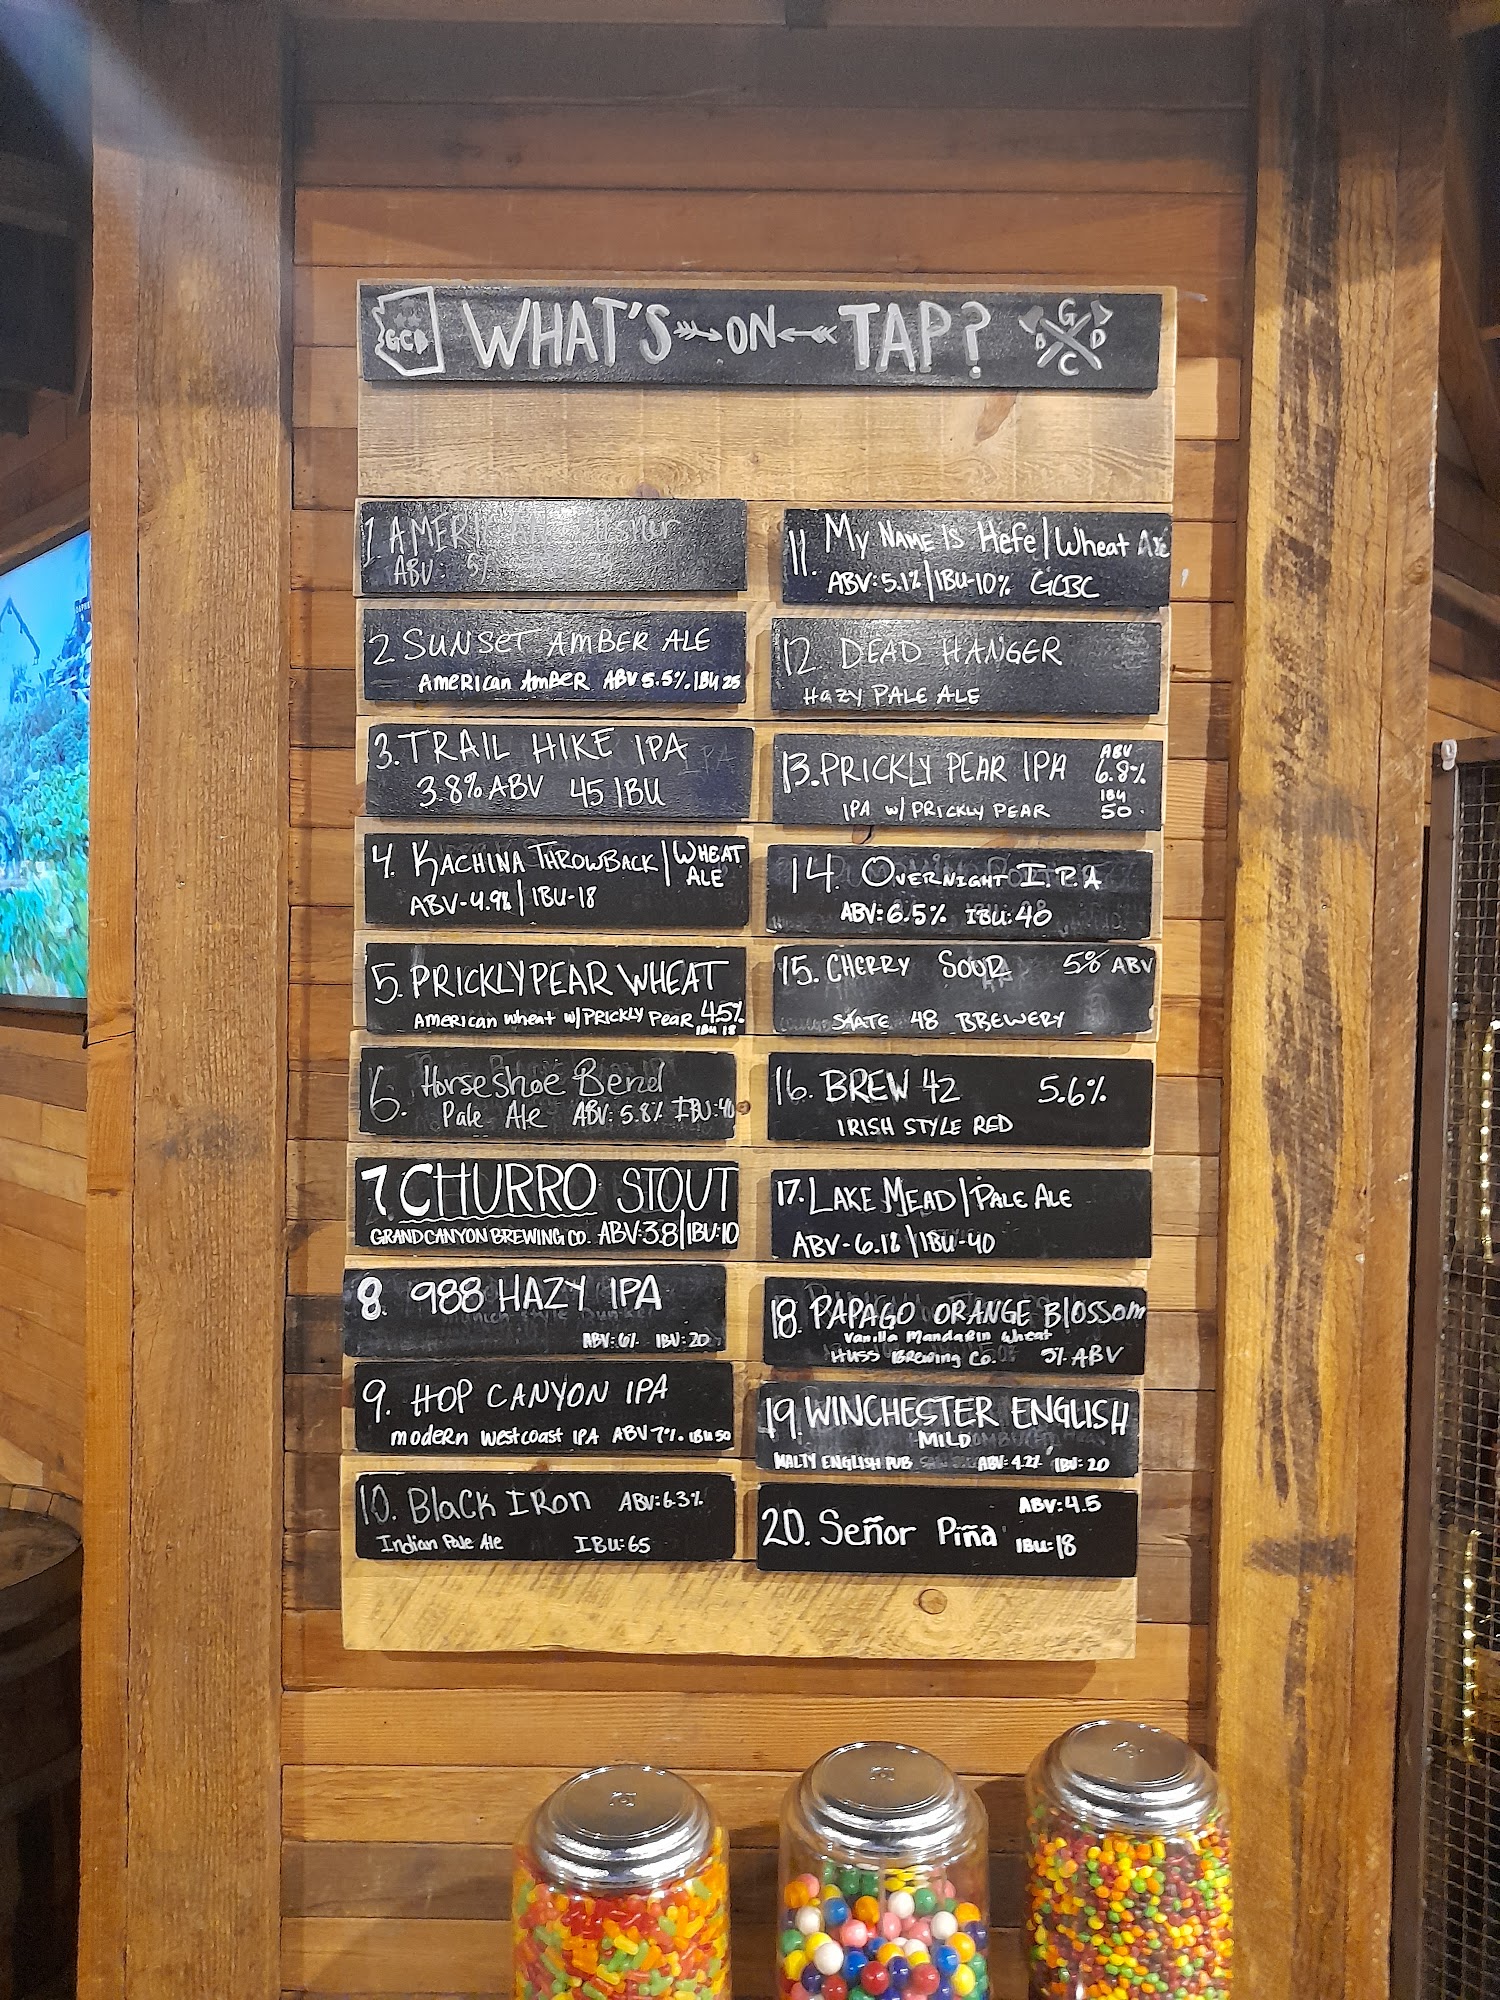 GCB WHAT'S ON TAP? G B D C
1 AMERI
ABV: 5%
2 SUNSET AMBER ALE
AMERICAN AMBER ABV 5.5% IBU 25
3. TRAIL HIKE IPA
3.8% ABV 45 IBU
4. KACHINA THROWBACK | WHEAT
ALE
ABV-4.9% | IBU-18
5. PRICKLY PEAR WHEAT
AMERICAN WHEAT W/ PRICKLY PEAR 4.5%
IBU 18
6. Horseshoe Bend
Pale Ale ABV: 5.8% IBU:40
7. CHURRO STOUT
GRAND CANYON BREWING CO. ABV:3.8 | IBU:10
8. 988 HAZY IPA
ABV: 6% IBU: 20
9. HOP CANYON IPA
modern westcoast IPA ABV 7% IBU 50
10. Black Iron ABV:6.3%
Indian Pale Ale IBU:65
11. My Name Is Hefe | Wheat Ale
ABV: 5.1% | IBU-10% GCBC
12 DEAD HANGER
HAZY PALE ALE
13. PRICKLY PEAR IPA ABV
6.8%
IPA W/ PRICKLY PEAR IBU
50
14. OVERNIGHT I.P.A
ABV: 6.5% IBU: 40
15. CHERRY SOUR 5% ABV
STATE 48 BREWERY
16. BREW 42 5.6%
IRISH STYLE RED
17. LAKE MEAD | PALE ALE
ABV-6.1% | IBU-40
18. PAPAGO ORANGE Blossom
Vanilla Mandarin Wheat
HUSS Brewing Co. 5% ABV
19. WINCHESTER ENGLISH
MILD
MALTY ENGLISH PUB ABV: 4.2% IBU: 20
20. Señor Piña ABV: 4.5
IBU: 18